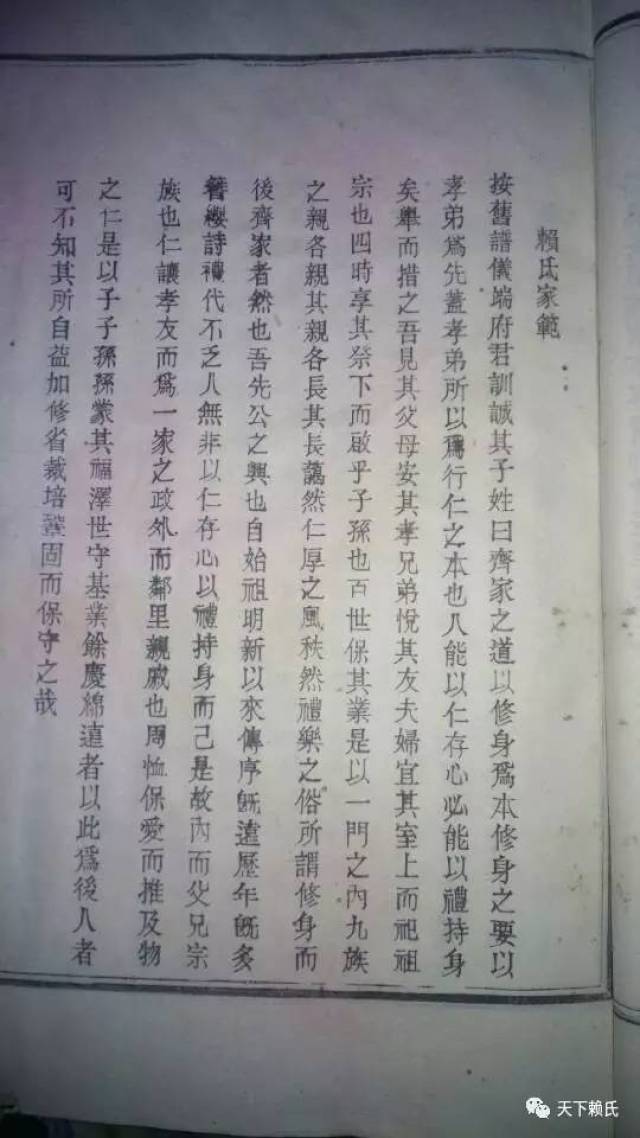 賴氏家範
按舊譜儀端府君訓誡其子姓曰齊家之道以修身爲本修身之要以
孝弟爲先蓋孝弟所以爲行仁之本也人能以仁存心必能以禮持身
矣舉而措之吾見其父母安其孝兄弟悅其友夫婦宜其室上而祀祖
宗也四時享其祭下而啟乎子孫也百世保其業是以一門之內九族
之親各親其親各長其長藹然仁厚之風秩然禮樂之俗所謂修身而
後齊家者然也吾先公之興也自始祖明新以來傳序既遠歷年既多
簪纓詩禮代不乏人無非以仁存心以禮持身而己是故內而父兄宗
族也仁讓孝友而爲一家之政外而鄰里親戚也周恤保愛而推及物
之仁是以子子孫孫蒙其福澤世守基業餘慶綿遠者以此爲後人者
可不知其所自益加修省裁培鞏固而保守之哉
天下赖氏